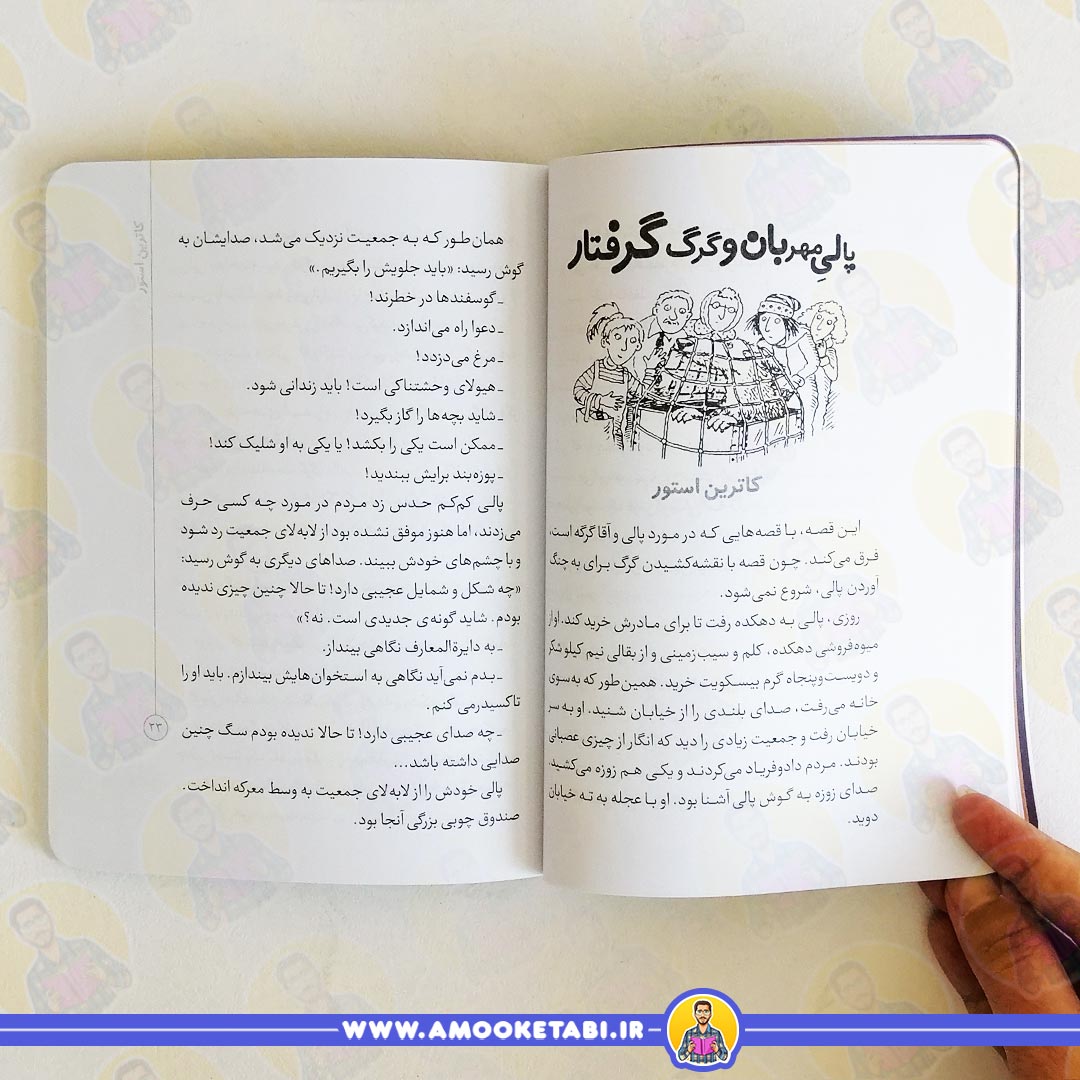 پالیِ مهربان و گرگ گرفتار
کاترین استور
این قصه، با قصه‌هایی که در مورد پالی و آقا گرگه است،
فرق می‌کند. چون قصه با نقشه‌کشیدن گرگ برای به چنگ
آوردن پالی، شروع نمی‌شود.
روزی، پالی به دهکده رفت تا برای مادرش خرید کند. او از
میوه‌فروشی دهکده، کلم و سیب‌زمینی و از بقالی نیم کیلو شکر
و دویست‌وپنجاه گرم بیسکویت خرید. همین‌طور که به‌سوی
خانه می‌رفت، صدای بلندی را از خیابان شنید. او به سر
خیابان رفت و جمعیت زیادی را دید که انگار از چیزی عصبانی
بودند. مردم دادوفریاد می‌کردند و یکی هم زوزه می‌کشید.
صدای زوزه به گوش پالی آشنا بود. او با عجله به ته خیابان
دوید.
کاترین استور
همان طور که به جمعیت نزدیک می‌شد، صدایشان به
گوش رسید: «باید جلویش را بگیریم.»
ـ گوسفندها در خطرند!
ـ دعوا راه می‌اندازد.
ـ مرغ می‌دزدد!
ـ هیولای وحشتناکی است! باید زندانی شود.
ـ شاید بچه‌ها را گاز بگیرد!
ـ ممکن است یکی را بکشد! یا یکی به او شلیک کند!
ـ پوزه‌بند برایش ببندید!
پالی کم‌کم حدس زد مردم در مورد چه کسی حرف
می‌زدند، اما هنوز موفق نشده بود از لابه‌لای جمعیت رد شود
و با چشم‌های خودش ببیند. صداهای دیگری به گوش رسید:
«چه شکل و شمایل عجیبی دارد! تا حالا چنین چیزی ندیده
بودم. شاید گونه‌ی جدیدی است. نه؟»
ـ به دایرةالمعارف نگاهی بینداز.
ـ بدم نمی‌آید نگاهی به استخوان‌هایش بیندازم. باید او را
تاکسیدرمی کنم.
ـ چه صدای عجیبی دارد! تا حالا ندیده بودم سگ چنین
صدایی داشته باشد...
پالی خودش را از لابه‌لای جمعیت به وسط معرکه انداخت.
صندوق چوبی بزرگی آنجا بود.
۲۳
WWW.AMOOKETABI.IR